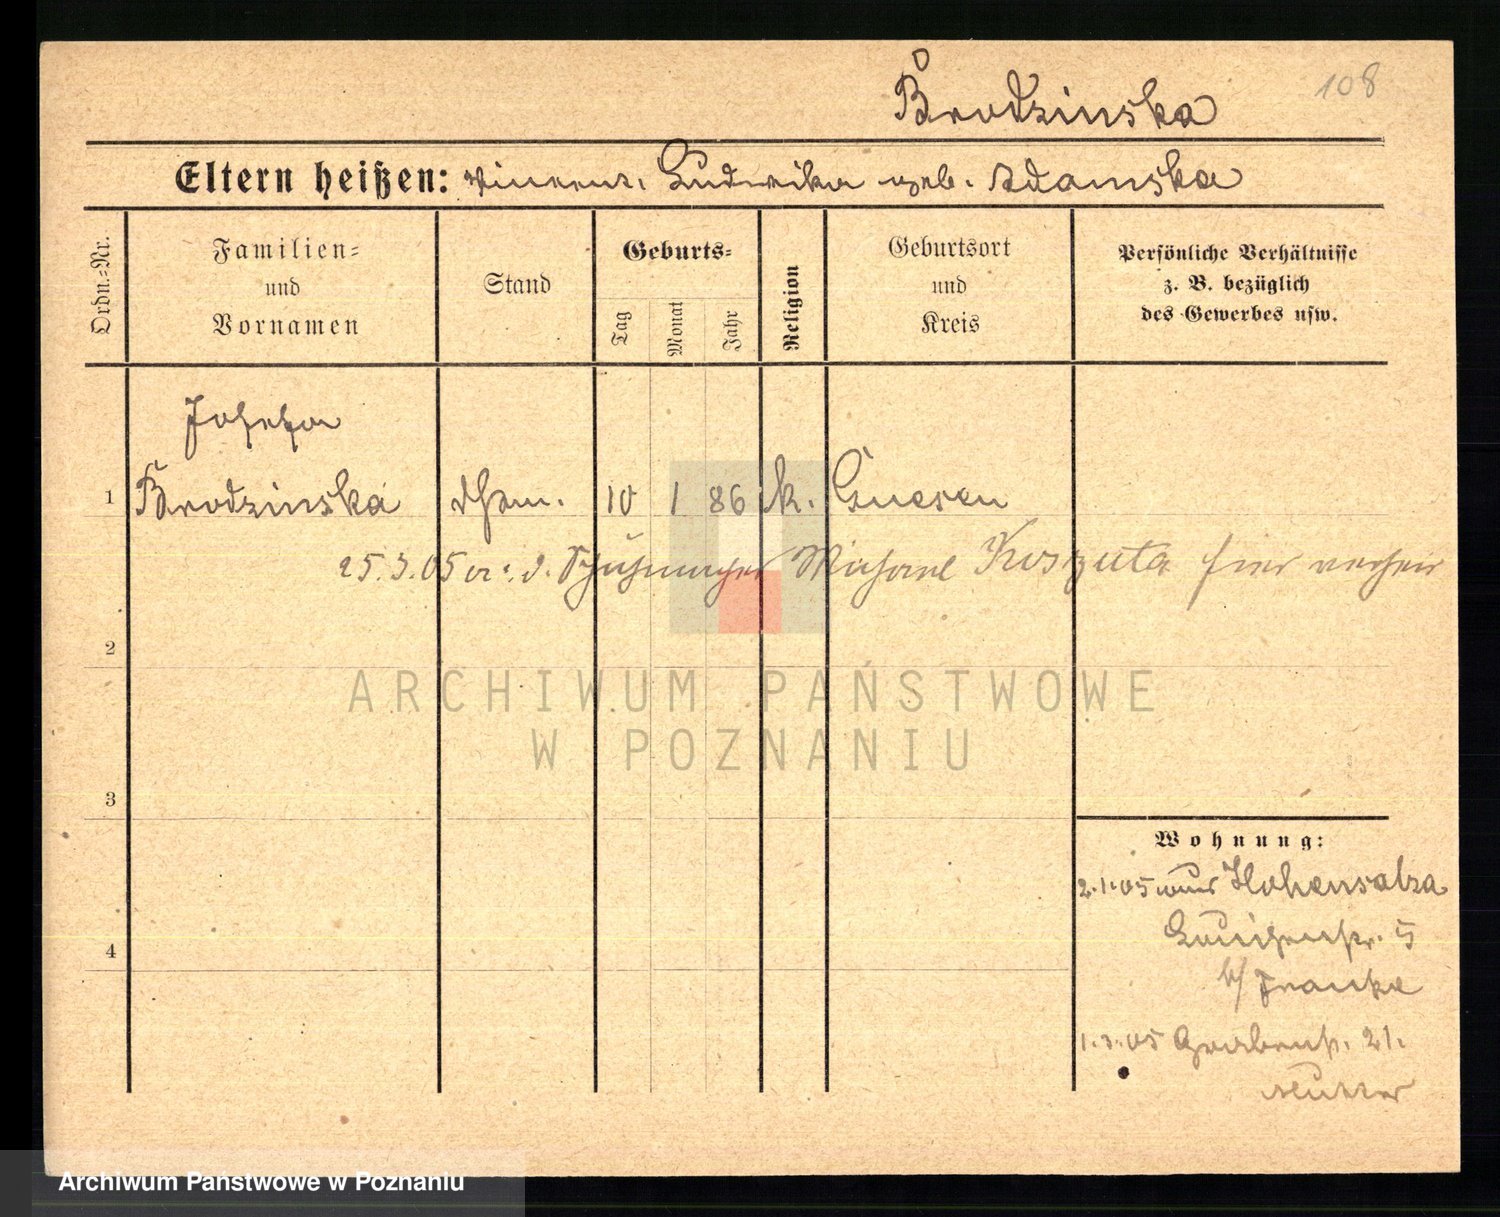 108
Brodzinska
Eltern heißen: Vincent, Ludwika geb. Adamska
Ordn.-Nr.
Familien- und Vornamen
Stand
Geburts-
Tag
Monat
Jahr
Religion
Geburtsort und Kreis
Persönliche Verhältnisse z. B. bezüglich des Gewerbes usw.
Josefa
1 Brodzinska 10 1 86 k. Gnesen
25.3.05 d. Schuhmacher Michael Koszuta hier
2
ARCHIWUM PAŃSTWOWE
W POZNANIU
3
Wohnung:
2.1.05 Hohensalza
5
b/ Franke
4
1.3.05 Grabenstr. 21.
Mutter
Archiwum Państwowe w Poznaniu